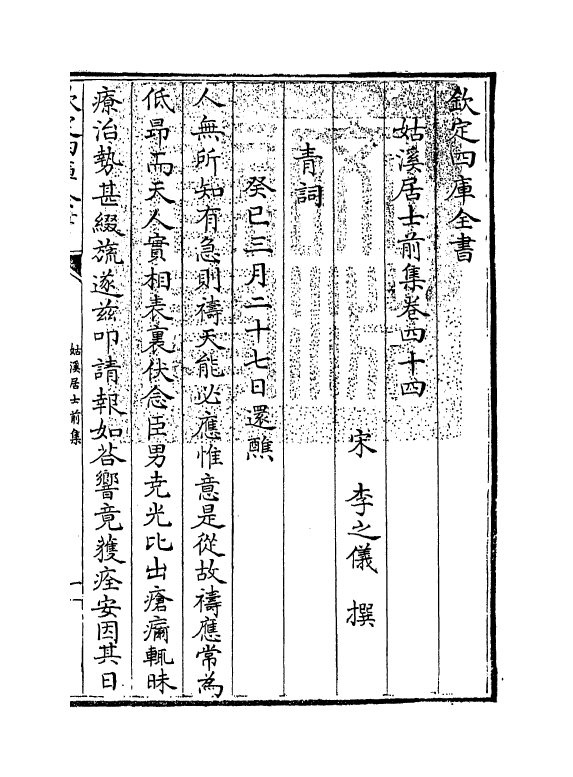 欽定四庫全書
姑溪居士前集卷四十四
宋 李之儀 撰
青詞
癸巳三月二十七日還醮
人無所知有急則禱天能必應惟意是從故禱應常為
低昻而天人實相表裏伏念臣男尭光比出瘡痏輒昧
療治勢甚綴旒遂兹叩請報如荅響竟獲痊安因其日
姑溪居士前集
一